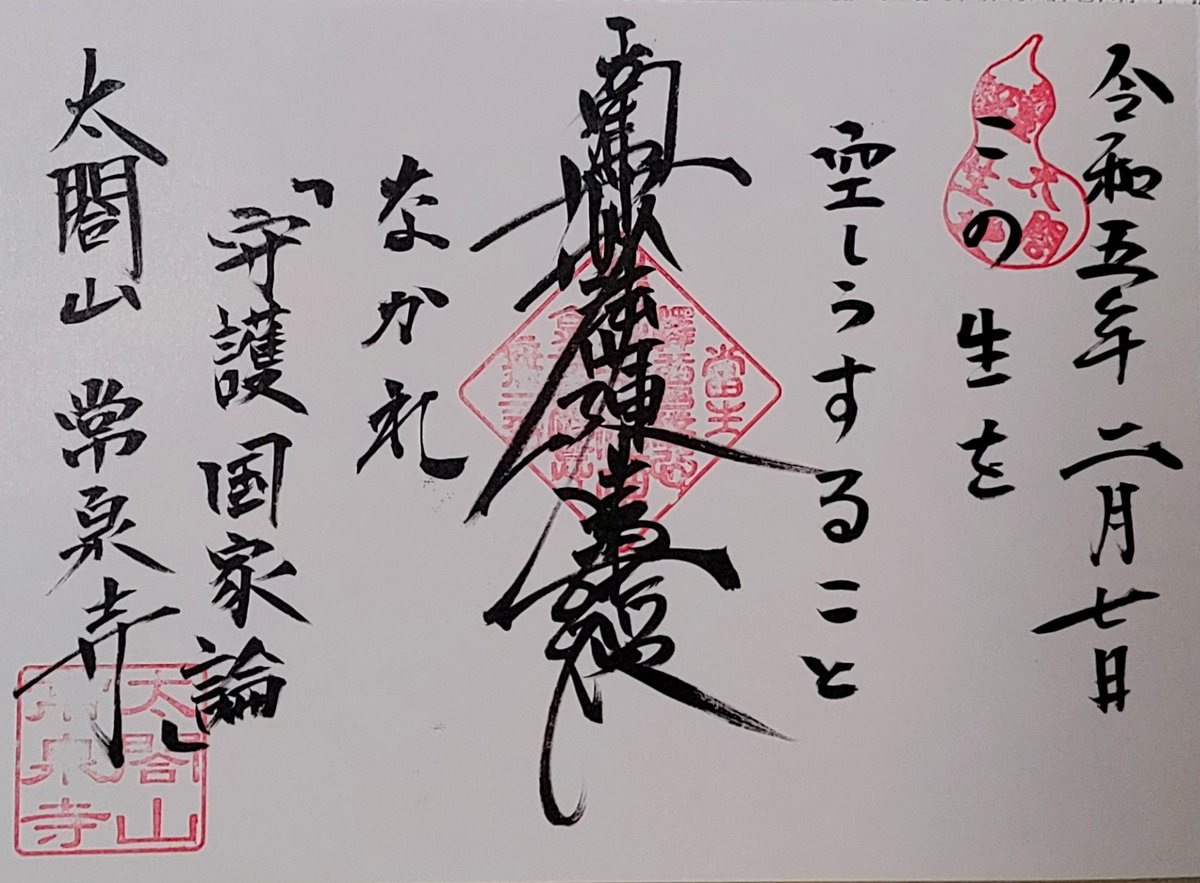 令和五年二月七日
この生を
空しうすること
南無妙法蓮華経
なかれ
「守護国家論」
太閤山 常泉寺
太閤山
常泉寺